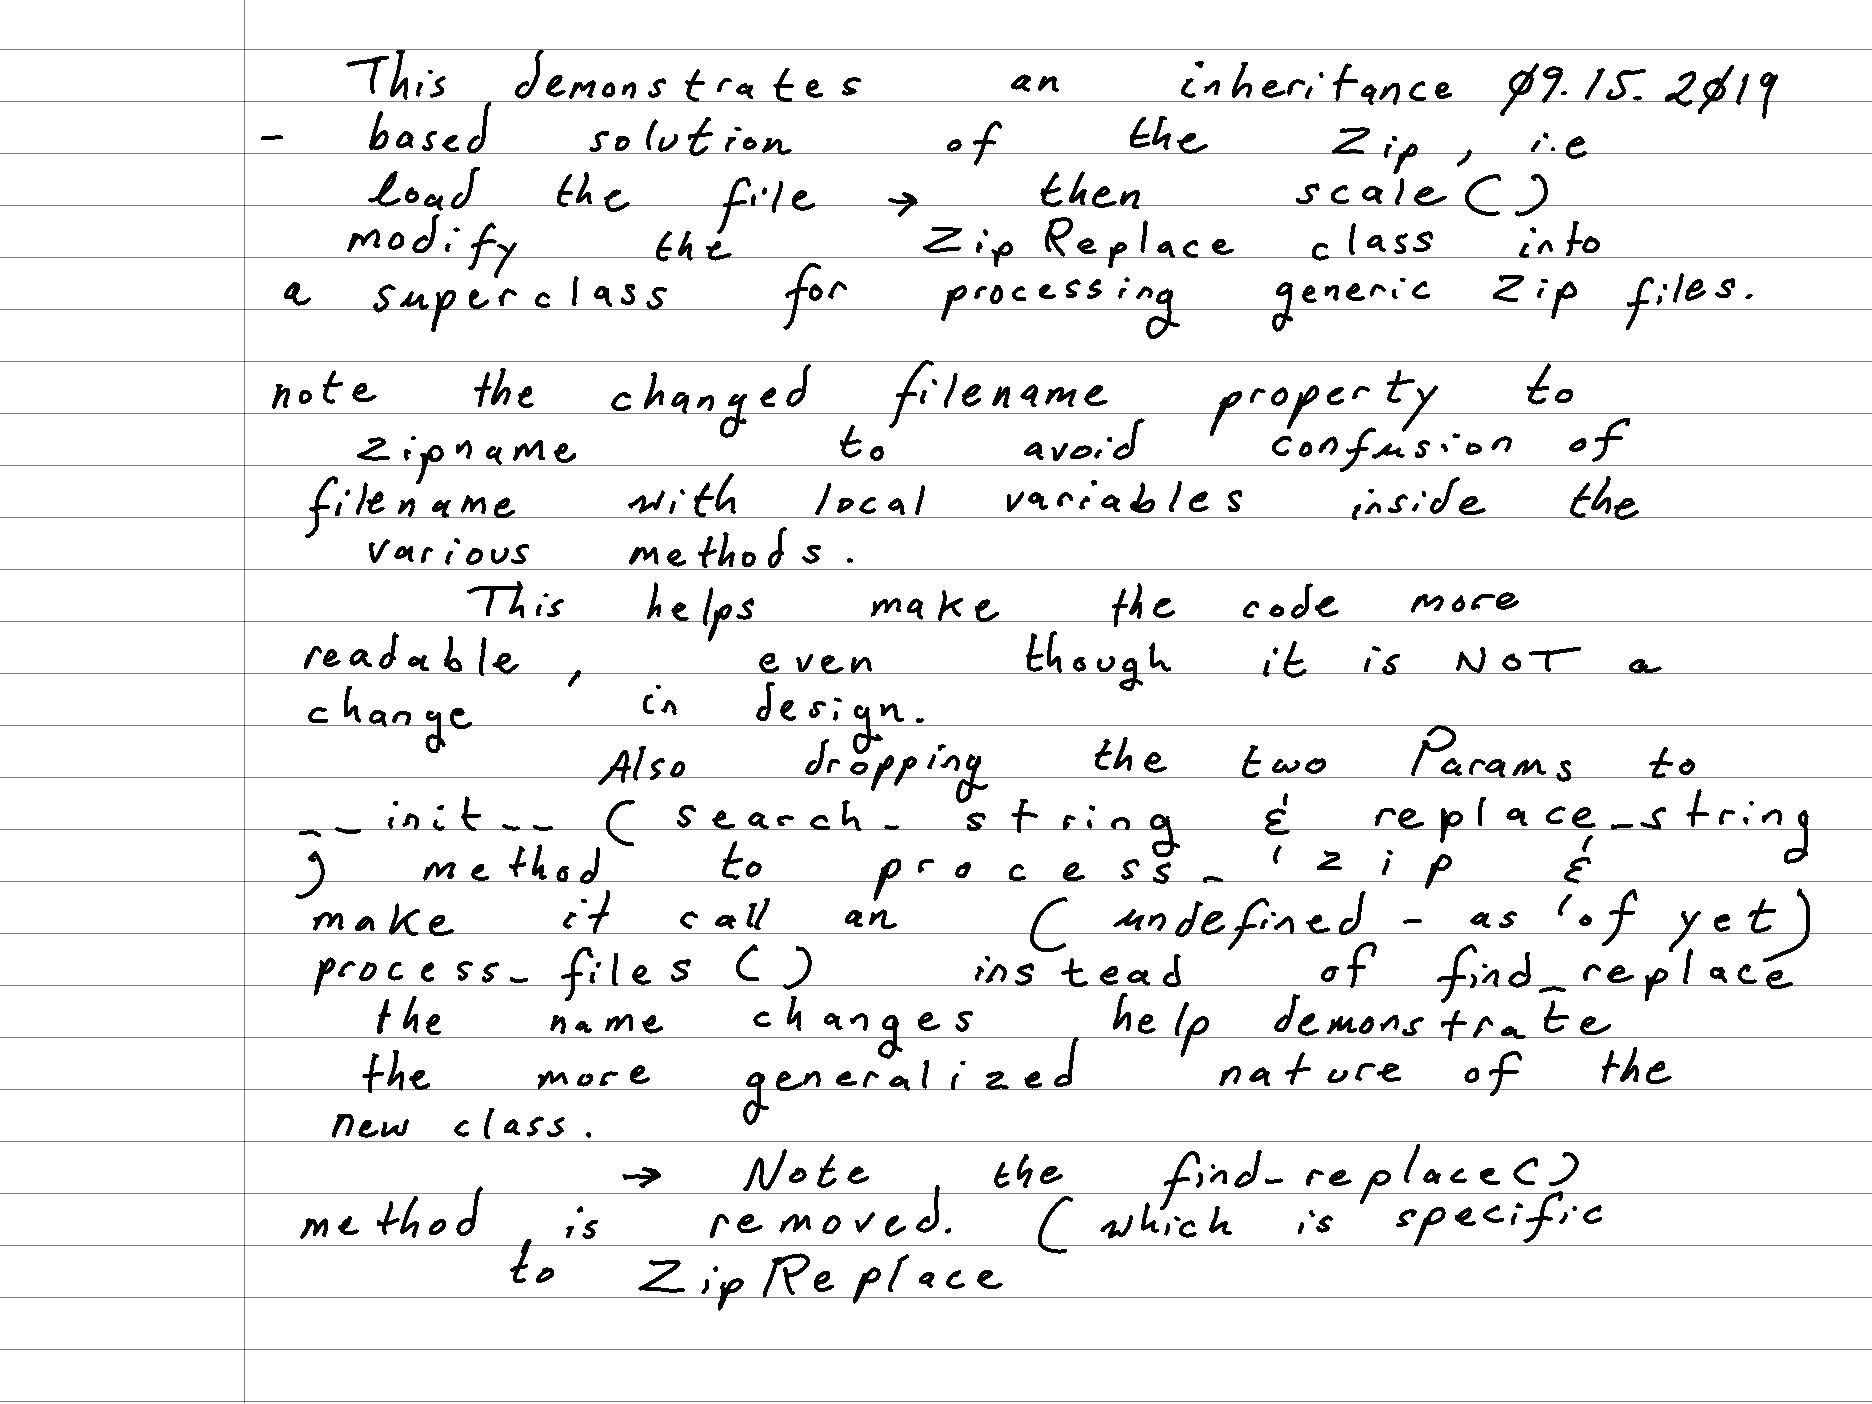 This demonstrates an inheritance 09.15.2019
- based solution of the Zip, i.e
load the file → then scale()
modify the ZipReplace class into
a superclass for processing generic Zip files.
note the changed filename property to
zipname to avoid confusion of
filename with local variables inside the
various methods.
This helps make the code more
readable, even though it is NOT a
change in design.
Also dropping the two Params to
__init__ (search_string & replace_string
) method to process_zip &
make it call an (undefined - as of yet)
process_files() instead of find_replace
the name changes help demonstrate
the more generalized nature of the
new class.
→ Note the find_replace()
method is removed. (which is specific
to ZipReplace